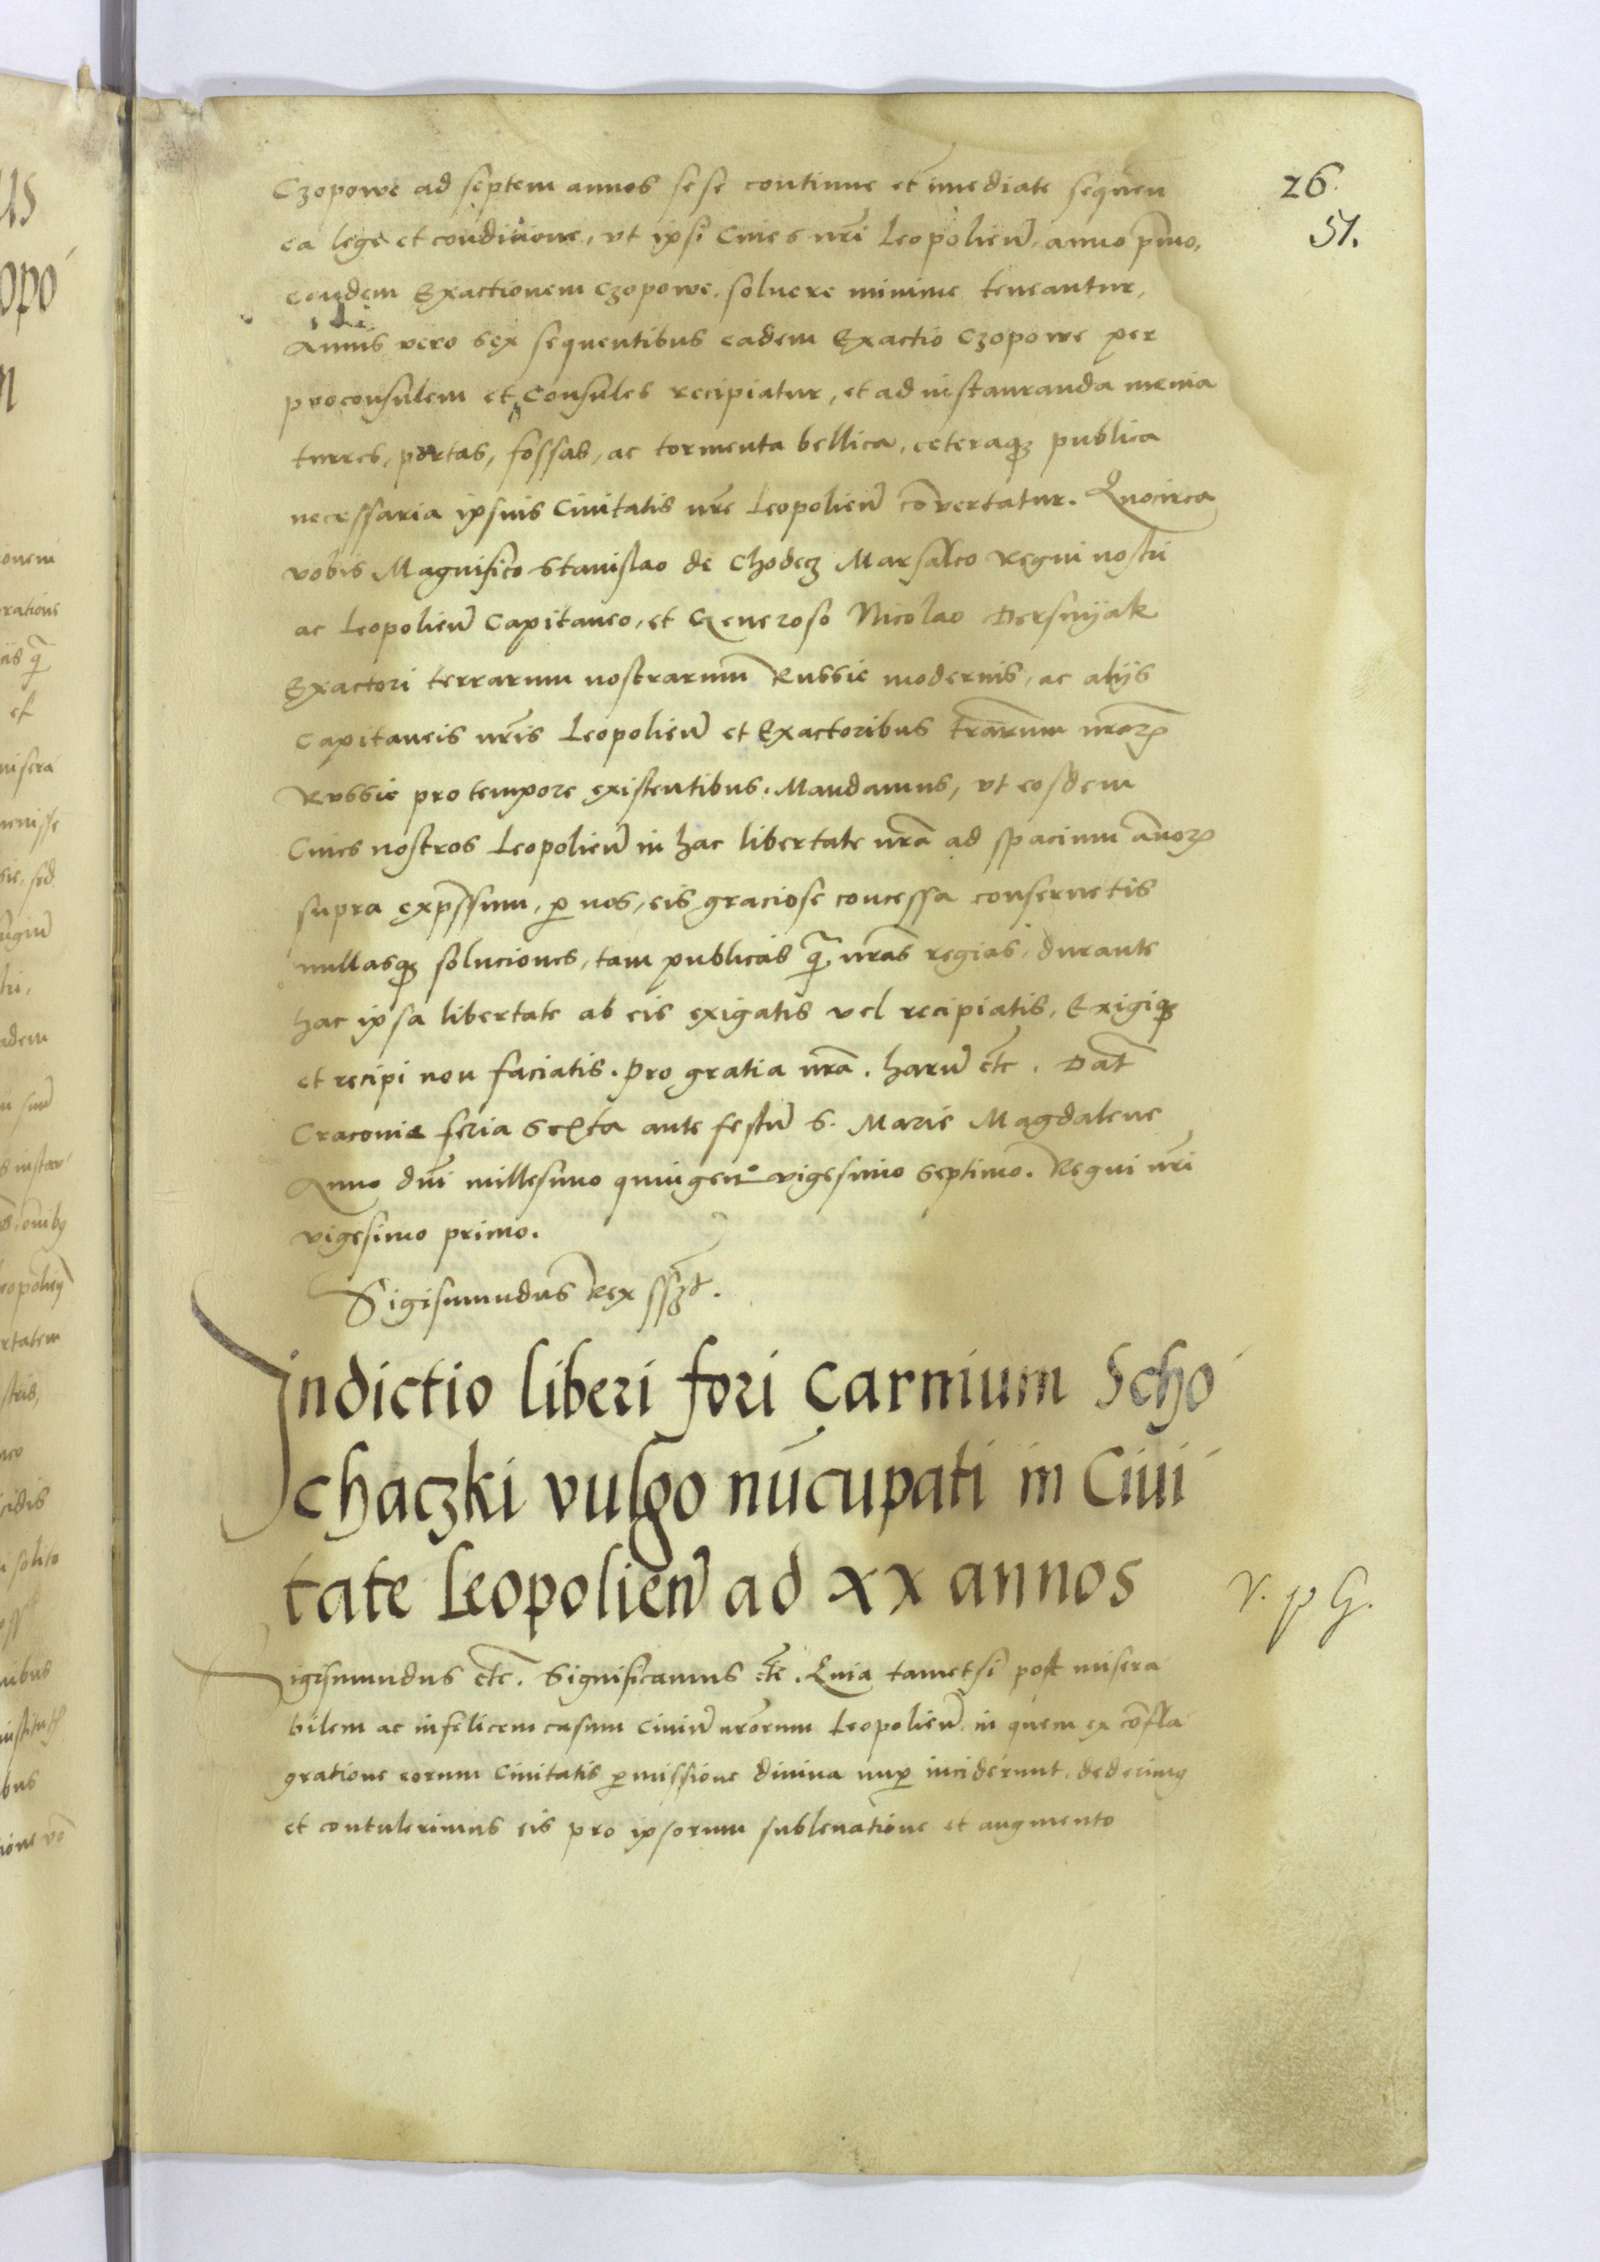 26.
51.
Czopowe ad septem annos sese continue et imediate sequen̄
ea lege et condicione, vt ipsi Ciues nr̄i Leopolien̄, anno pr̄mo,
eandem Exactionem czopowe. soluere minime teneantur,
Annis vero sex sequentibus eadem Exactio czopowe per
proconsulem et Consules recipiatur, et ad instauranda menia
turres, portas, fossas, ac tormenta bellica, ceteraqꝫ publica
necessaria ipsius Ciuitatis nr̄e Leopolien̄ cōvertatur. Quocirca
vobis Magnifico Stanislao de Chodecz Marsalco Regni nostri
ac Leopolien̄ Capitaneo, et Generoso Nicolao Dersnyak
Exactori terrarum nostrarum Russie modernis, ac alijs
Capitaneis nr̄is Leopolien̄ et Exactoribus tr̄arum nr̄aꝝ
Russie pro tempore existentibus. Mandamus, vt eosdem
Ciues nostros Leopolien̄ in hac libertate nr̄a ad spacium annoꝝ
supra exp̄ssum, ꝑ nos, eis graciose concessa conseruetis
nullasqꝫ soluciones, tam publicas q̄ nr̄as regias, durante
hac ipsa libertate ab eis exigatis vel recipiatis, Exigiqꝫ
et recipi non faciatis. pro gratia nr̄a. harū etc̄. Dat̄
Cracouie feria Sexta ante festū S. Marie Magdalene
Anno dn̄i millesimo quingen̄o vigesimo septimo. Regni nr̄i
vigesimo primo.
Sigismundus Rex ssꝫt.
Indictio liberi fori Carnium Scho
chaczki vulgo nūcupati in Ciui
tate Leopolien̄ ad xx annos
v. p G.
Sigismundus etc̄. Significamus etc̄. Quia tametsi post misera
bilem ac infelicem casum Ciuiū nr̄orum Leopolien̄. in quem ex cōfla
gratione eorum Ciuitatis ꝑmissione diuina nuꝑ inciderunt. dederimꝰ
et contulerimus eis pro ipsorum subleuatione et augmento